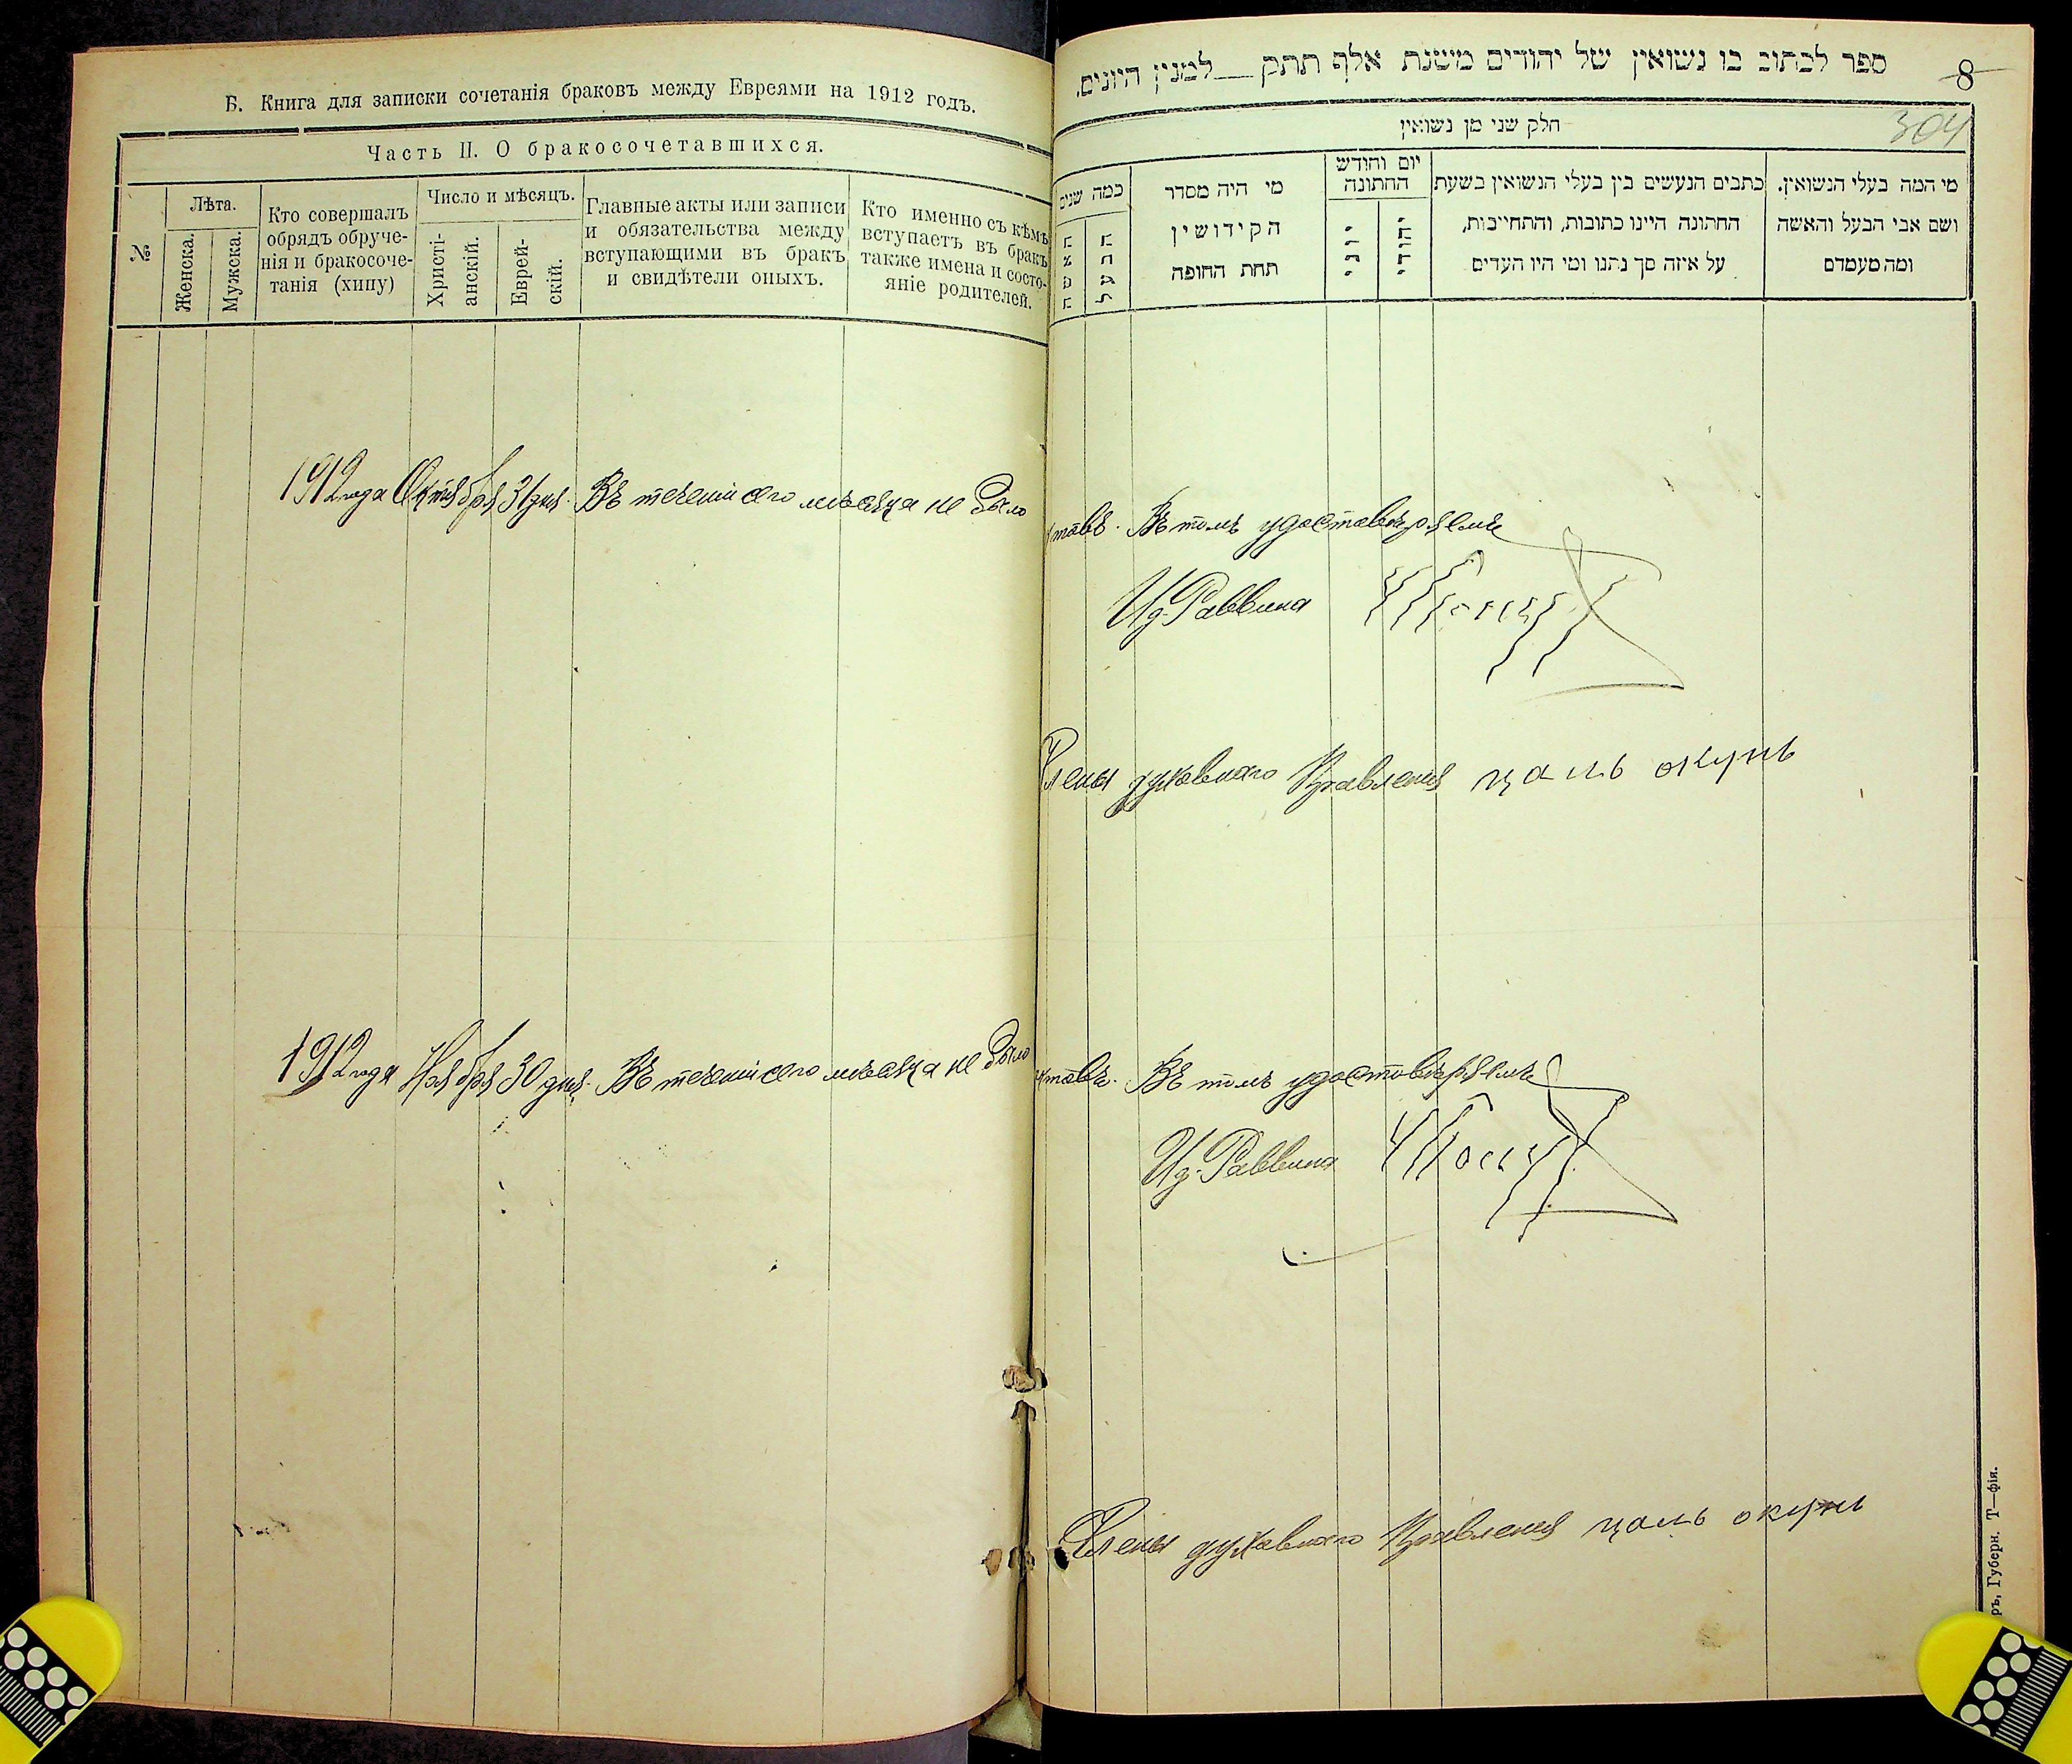 Б. Книга для записки сочетанія браковъ между Евреями на 1912 годъ.
Часть II. О бракосочетавшихся.
№
Лѣта.
Женска.
Мужска.
Кто совершалъ
обрядъ обруче-
нія и бракосоче-
танія (хипу)
Число и мѣсяцъ.
Христі-
анскій.
Еврей-
скій.
Главные акты или записи
и обязательства между
вступающими въ бракъ
и свидѣтели оныхъ.
Кто именно съ кѣмъ
вступаетъ въ бракъ
также имена и состо-
яніе родителей.
1912 года Октября 31 дня. Въ теченіи сего мѣсяца не было
1912 года Ноября 30 дня. Въ теченіи сего мѣсяца не было
ספר לכתוב בו נשואין של יהודים משנת אלף תתק למנין היונים.
8
304
חלק שני מן נשואין
מי המה בעלי הנשואין.
ושם אבי הבעל והאשה
ומה מעמדם
כתבים הנעשים בין בעלי הנשואין בשעת
החתונה היינו כתובות, והתחייבות,
על איזה סך נתנו ומי היו העדים
יום וחודש
החתונה
יהודי
יוני
מי היה מסדר
הקידושין
תחת החופה
כמה שנים
הבעל
האשה
Въ томъ удостовѣряемъ
И.д. Раввина
Члены духовнаго Правленія цаль окунь
Въ томъ удостовѣряемъ
И.д. Раввина
Члены духовнаго Правленія цаль окунь
ръ, Губерн. Т—фія.